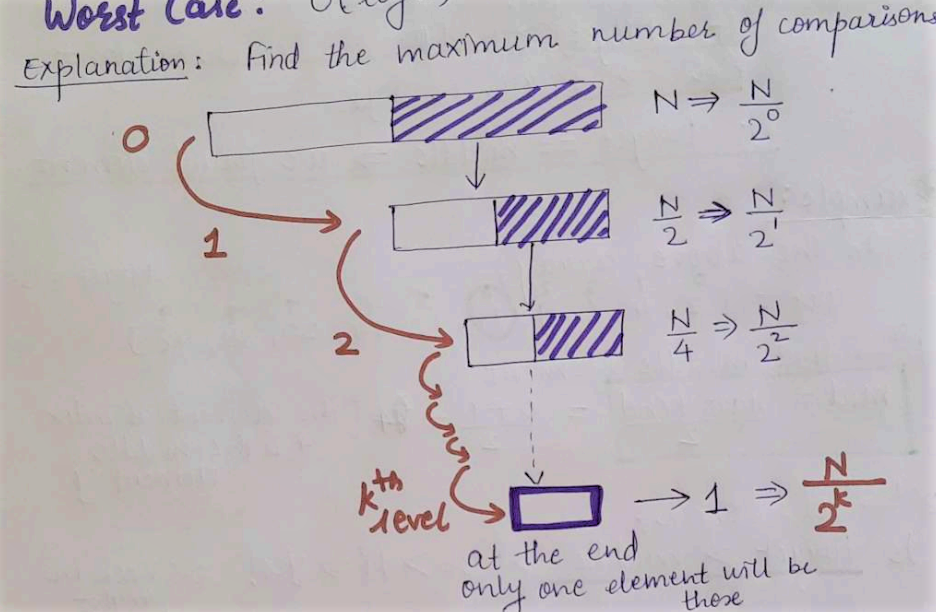 Worst Case :
Explanation : Find the maximum number of comparisons
0 N ⇒ N/2^0
1 N/2 ⇒ N/2^1
2 N/4 ⇒ N/2^2
kth level → 1 ⇒ N/2^k
at the end
only one element will be
there